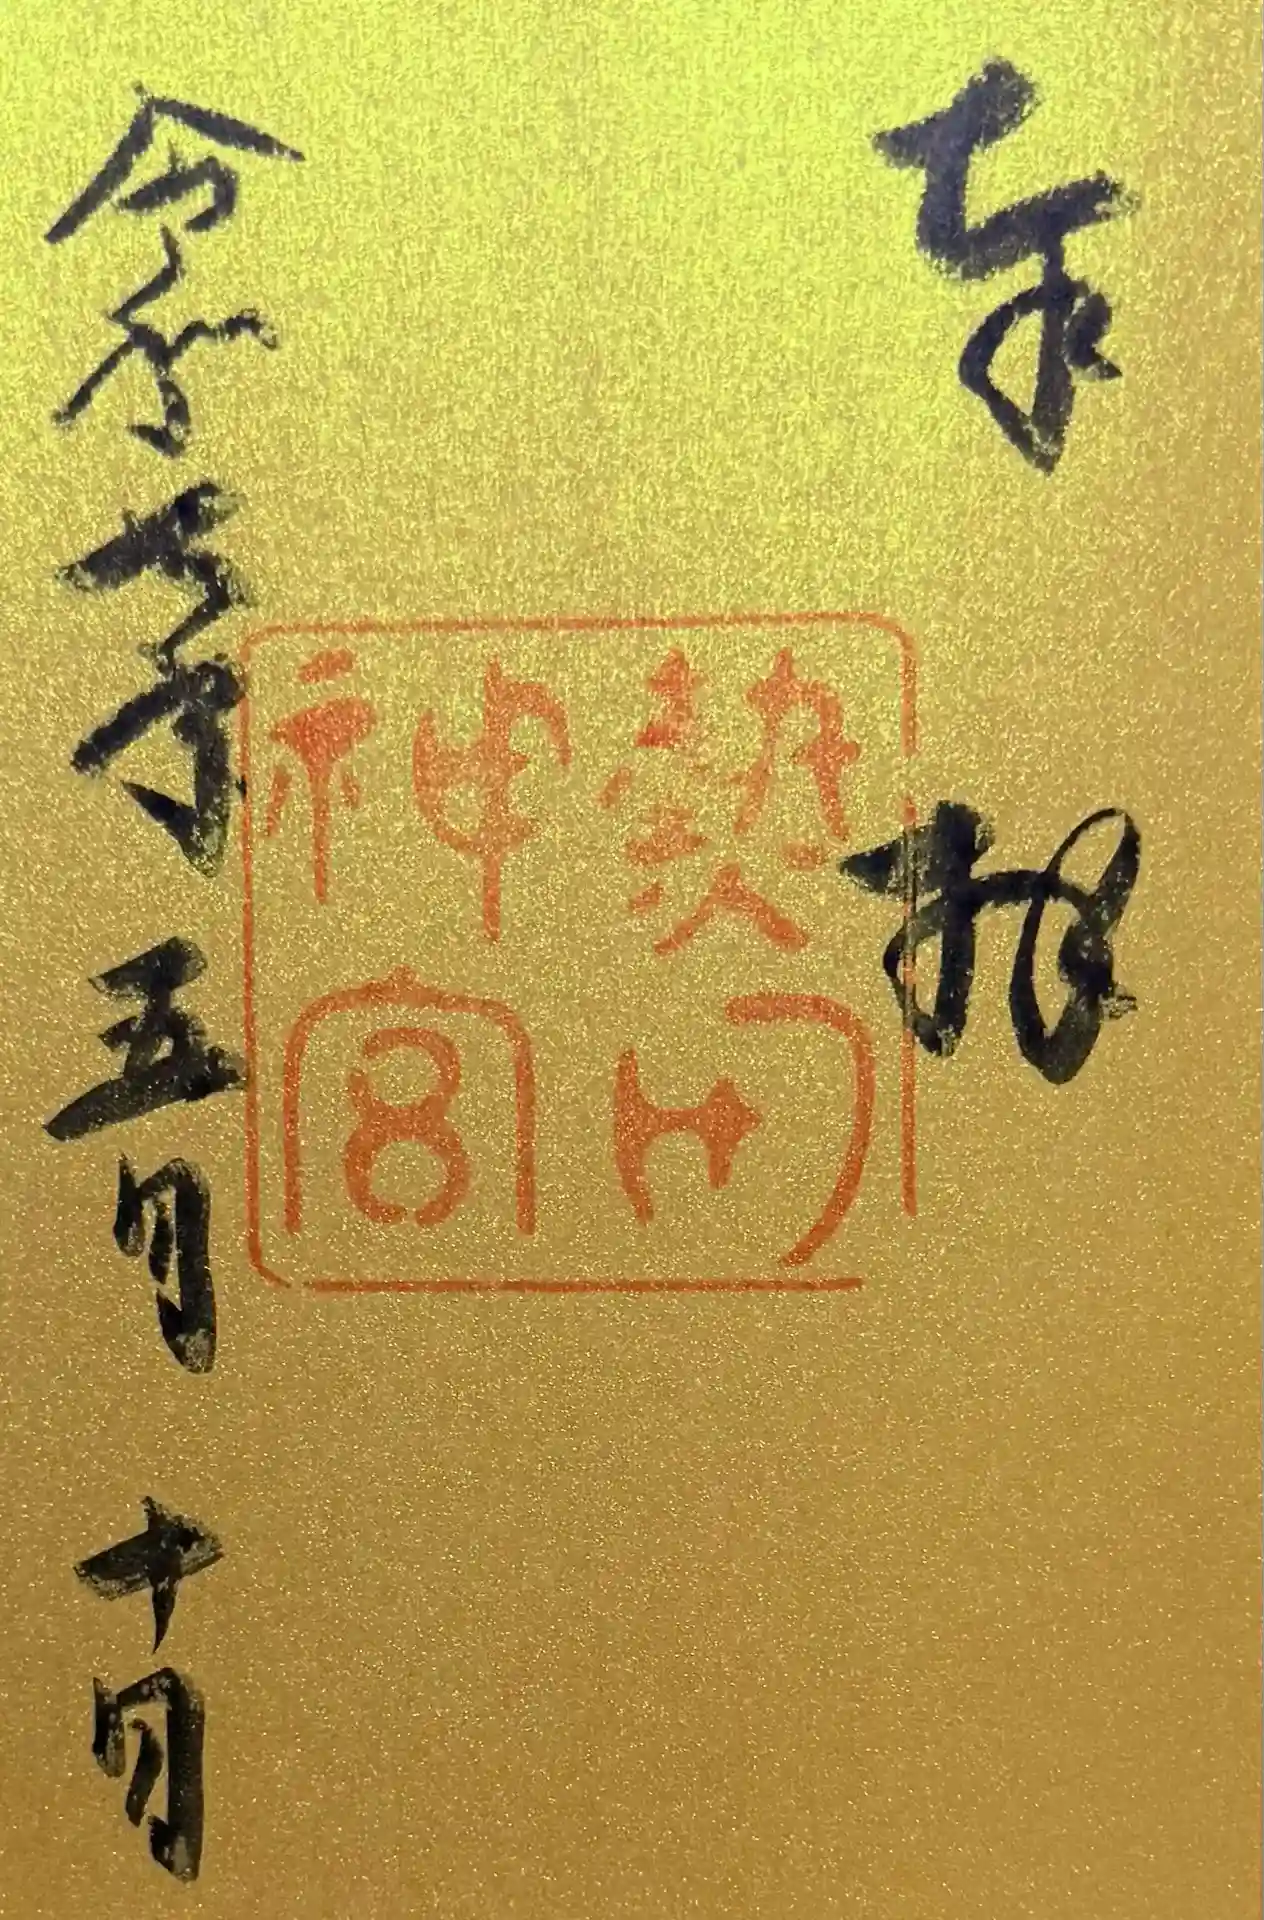 奉拝
熱田
神宮
令和年五月十日